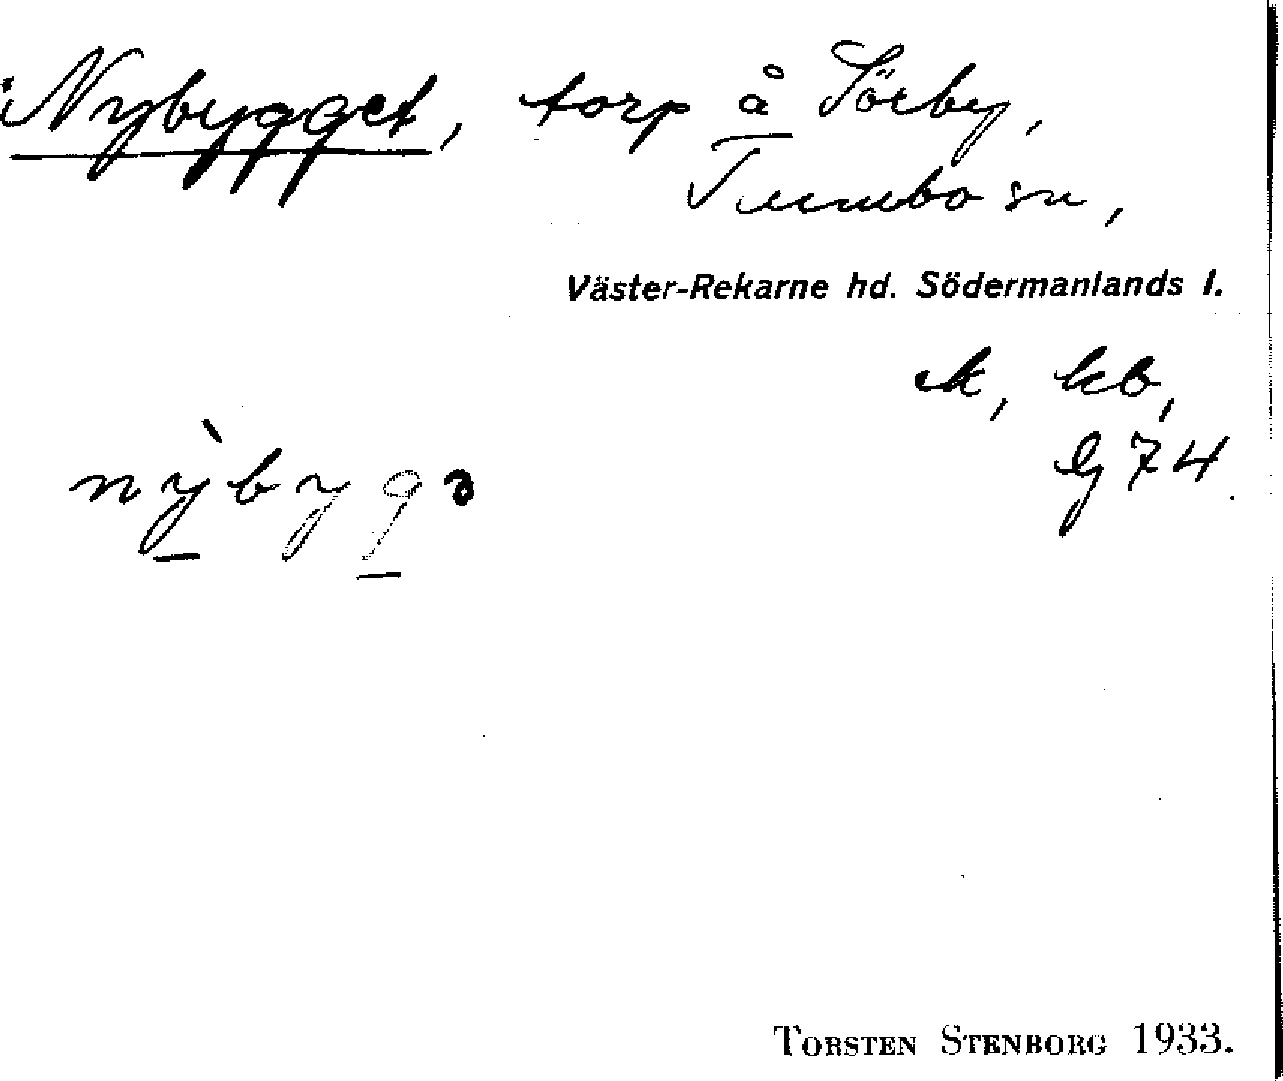 Nybygget, torp å Sörby,
Tumbo sn,
Väster-Rekarne hd. Södermanlands l.
ek, kb,
G 74
nỳbygə
TORSTEN STENBORG 1933.